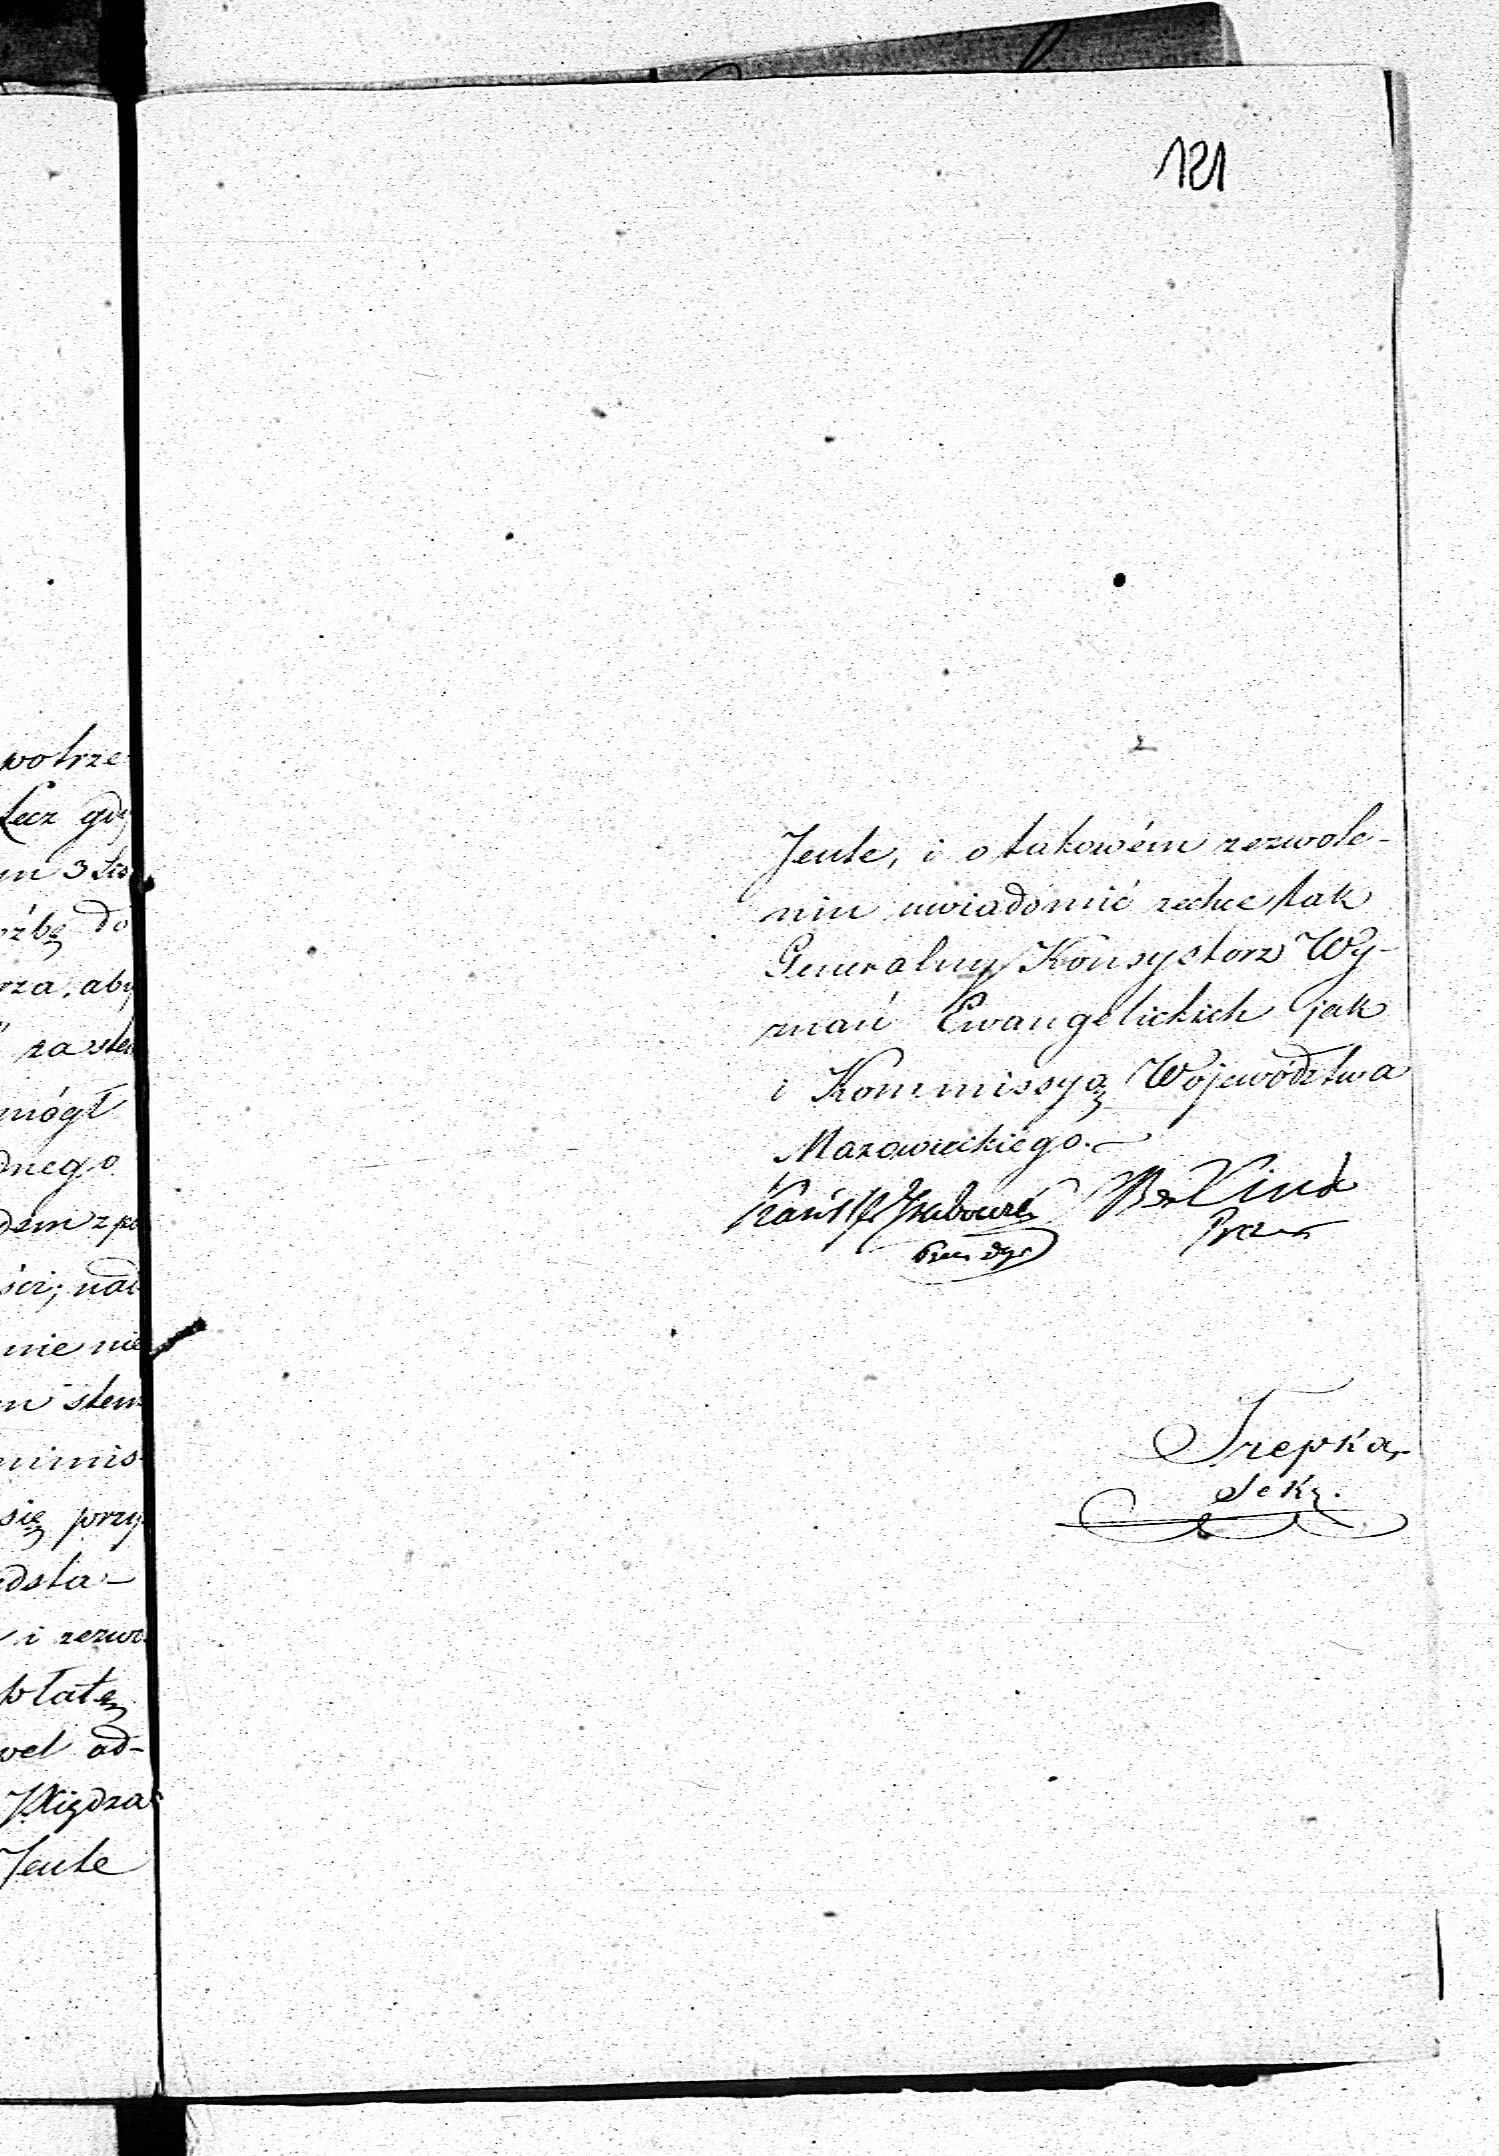 121
potrze
Lecz gdy
źbę do
rza, aby
mógł
dnego
dem z po
ści; nad
nie nie
się przy
dsta-
i zezwo
płatę
vel ad-
JXiędza
Jeute
Jeute, i o takowém zezwole-
niu uwiadomić zechce tak
Generalny Konsystorz Wy-
znań Ewangelickich jak
i Kommissyą Województwa
Mazowieckiego.
Trepka,
Sekr.